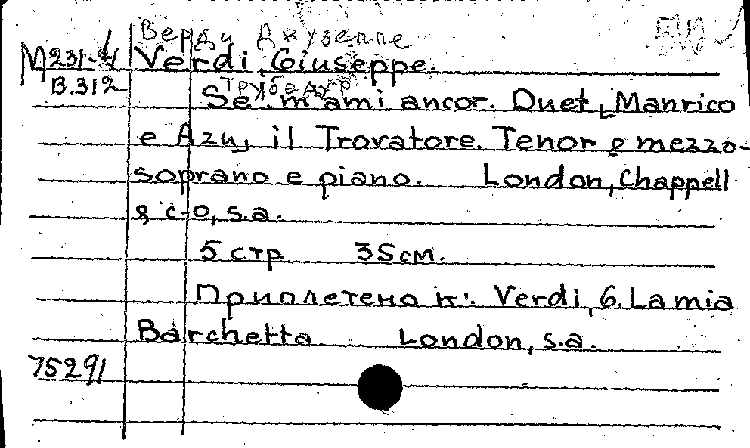 Верди Джузеппе
М231-4 Verdi, Giuseppe.
В.312 Трубадур
Se m'ami ancor. Duet, Manrico
e Azu, il Trovatore. Tenor e mezzo-
soprano e piano. London, Chappell
& c-o, s.a.
5 стр 35см.
Приплетено к: Verdi, G. La mia
Barchetta. London, s.a.
75291